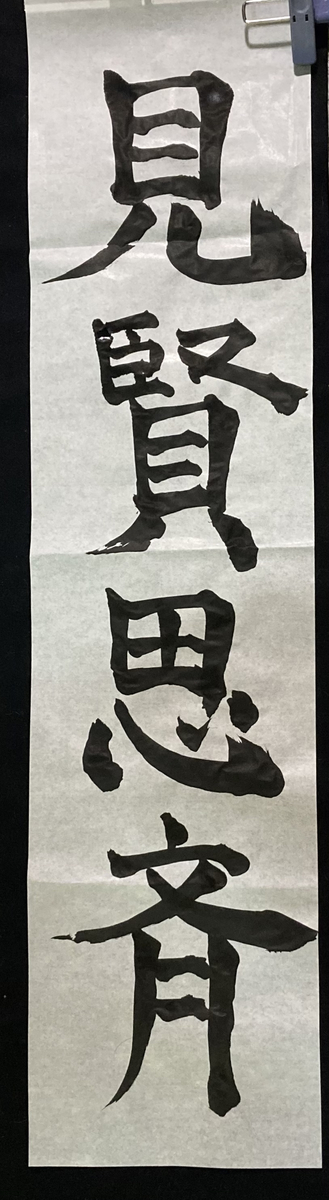 見賢思斉